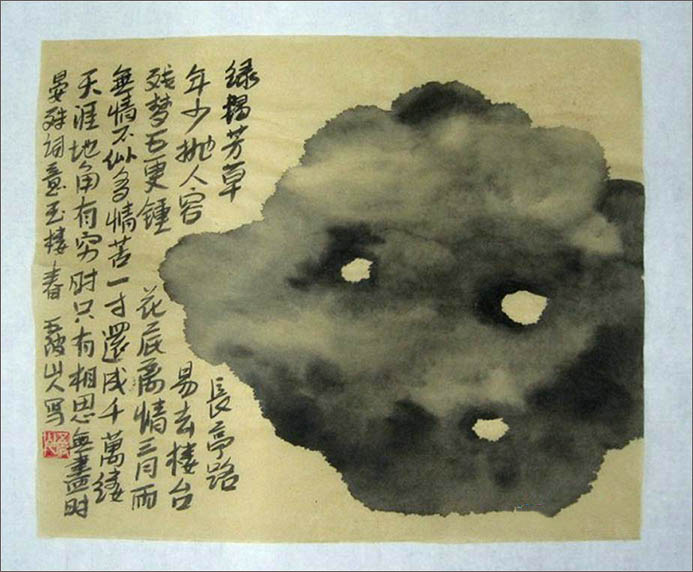 绿楊芳草長亭路
年少抛人容易去楼台
残梦五更鍾花底离情三月雨
無情不似多情苦一寸還成千萬缕
天涯地角有穷时只有相思無盡时
晏殊词意玉楼春山人写